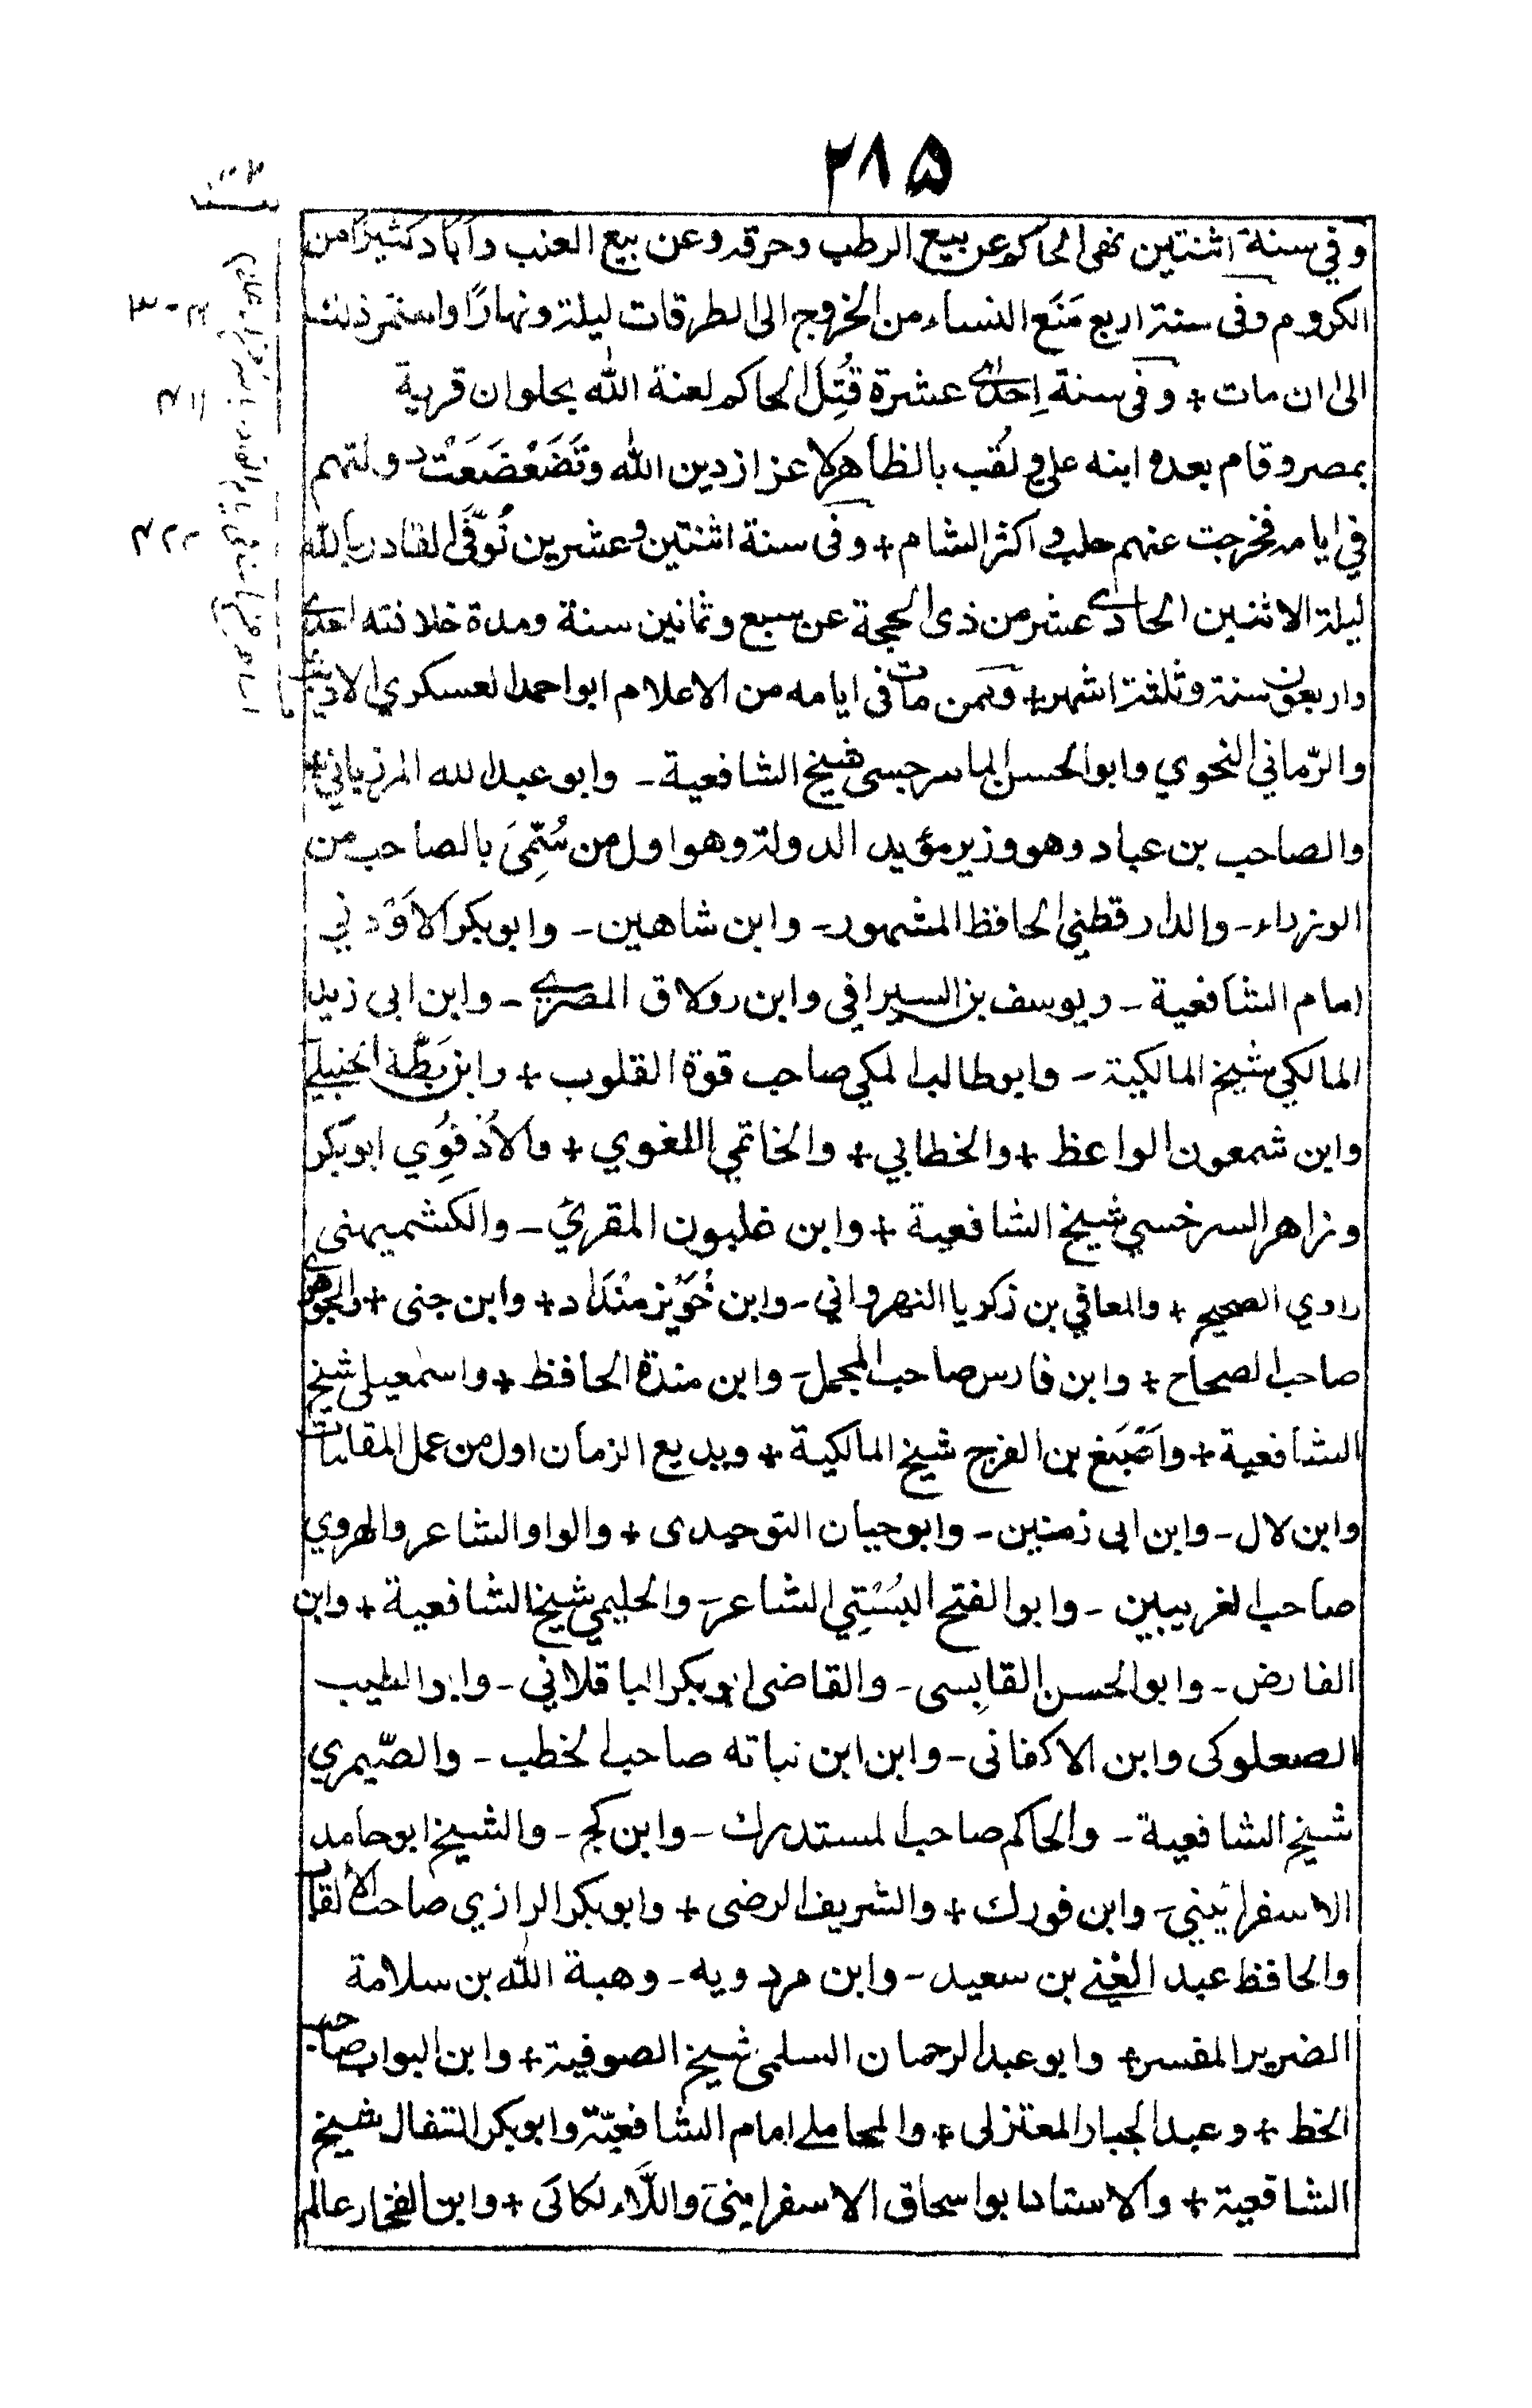 ۲۸۵
وفي سنة اثنتين نهى الحاكم عن بيع الرطب وحرقه وعن بيع العنب وآباد كثيرًا من
الكروم وفى سنة اربع مَنَع النساء من الخروج الى الطرقات ليلة ونهارًا واستمر ذلك
الى ان مات + وفى سنة إحدى عشرة قُتِلَ الحاكم لعنة الله بحلوان قرية
بمصر وقام بعده ابنه على ولُقب بالظاهر لاعزاز دين الله وتَضَعْضَعَتْ دولتهم
في ايامه فخرجت عنهم حلب و اكثر الشام + وفى سنة اثنتين وعشرين تُوفّى القادر بالله
ليلة الاثنين الحادى عشر من ذى الحجة عن سبع وثمانين سنة ومدة خلافته احدى
واربعون سنة وثلثة اشهر + وممن مات فى ايامه من الاعلام ابو احمد العسكري الاديب
والرّماني النحوي وابو الحسن الماسرجسى شيخ الشافعية - وابو عبد الله المرزباني +
والصاحب بن عباد وهو وزير مؤيد الدولة وهو اول من سُمِّىَ بالصاحب من
الوزراء - والدارقطني الحافظ المشهور - وابن شاهين - وابو بكر الاَوْدني
امام الشافعية - ويوسف بن السيرافي وابن رولاق المصرى - وابن ابى زيد
المالكي شيخ المالكية - وابو طالب المكي صاحب قوة القلوب + وابن بَطّة الحنبلى
وابن شمعون الواعظ + والخطابي + والخاتمي اللغوي + والاُذفُوِي ابو بكر
وزاهر السرخسي شيخ الشافعية + وابن غلبون المقرئ - والكشميهنى
راوي الصحيح + والمعافي بن زكريا النهرواني - وابن خُوَيْز مَنْدَاد + وابن جنى + والجوهرى
صاحب الصحاح + وابن فارس صاحب المجمل - وابن مندة الحافظ + واسمعيلى شيخ
الشافعية + واَصْبَغ بن الفرج شيخ المالكية + وبديع الزمان اول من عمل المقامات
وابن لال - وابن ابى زمنين - وابو حيان التوحيدى + والواو الشاعر والهروي
صاحب الغريبين - وابو الفتح البُسْتِي الشاعر - والحليمي شيخ الشافعية + وابن
الفارض - وابو الحسن القابسى - والقاضى ابو بكر الباقلاني - وابو الطيب
الصعلوكى وابن الاكفانى - وابن ابن نباته صاحب الخطب - والصّيمري
شيخ الشافعية - والحاكم صاحب المستدرك - وابن كج - والشيخ ابو حامد
الاسفرائيني - وابن فورك + والشريف الرضى + وابو بكر الرازي صاحب الالقاب
والحافظ عبد الغني بن سعيد - وابن مردويه - وهبة الله بن سلامة
الضرير المفسر + وابو عبد الرحمان السلمى شيخ الصوفية + وابن البواب صاحب
الخط + وعبد الجبار المعتزلى + والمحاملى امام الشافعيّة وابو بكر القفال شيخ
الشافعية + والاستاد ابو اسحاق الاسفراينى واللاء لكائى + وابن الفخار عالم